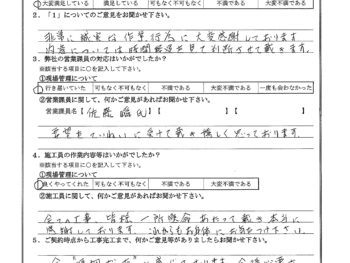 大変満足している 満足している 可もなく不可もなく 不満である 大変不満である
2.「1」についてのご意見をお聞かせ下さい。
非常に誠実な作業行為に大変感謝しております
内容については時間経過を見て判断させて戴きます。
3.弊社の営業課員の対応はいかがでしたか?
※該当する項目に○を記入して下さい。
①現場管理について
行き届いていた 可もなく不可もなく 不満である 大変不満である 一度も会わなかった
②営業課員に関して、何かご意見があればお聞かせ下さい。
営業課員名【佐藤 氏】【 】【 】
要望をていねいに受けて戴き嬉しく思っております。
4.施工員の作業内容等はいかがでしたか?
※該当する項目に○を記入して下さい。
①現場管理について
良くやってくれた 可もなく不可もなく 不満である 大変不満である
②施工員に関して、何かご意見があればお聞かせ下さい。
全ての工事、皆様一所懸命あたって戴き本当に
感謝しております。これからもお身体にお気をつけ下さい。
5.ご契約時点から工事完工まで、何かご意見等がありましたらお聞かせ下さい。